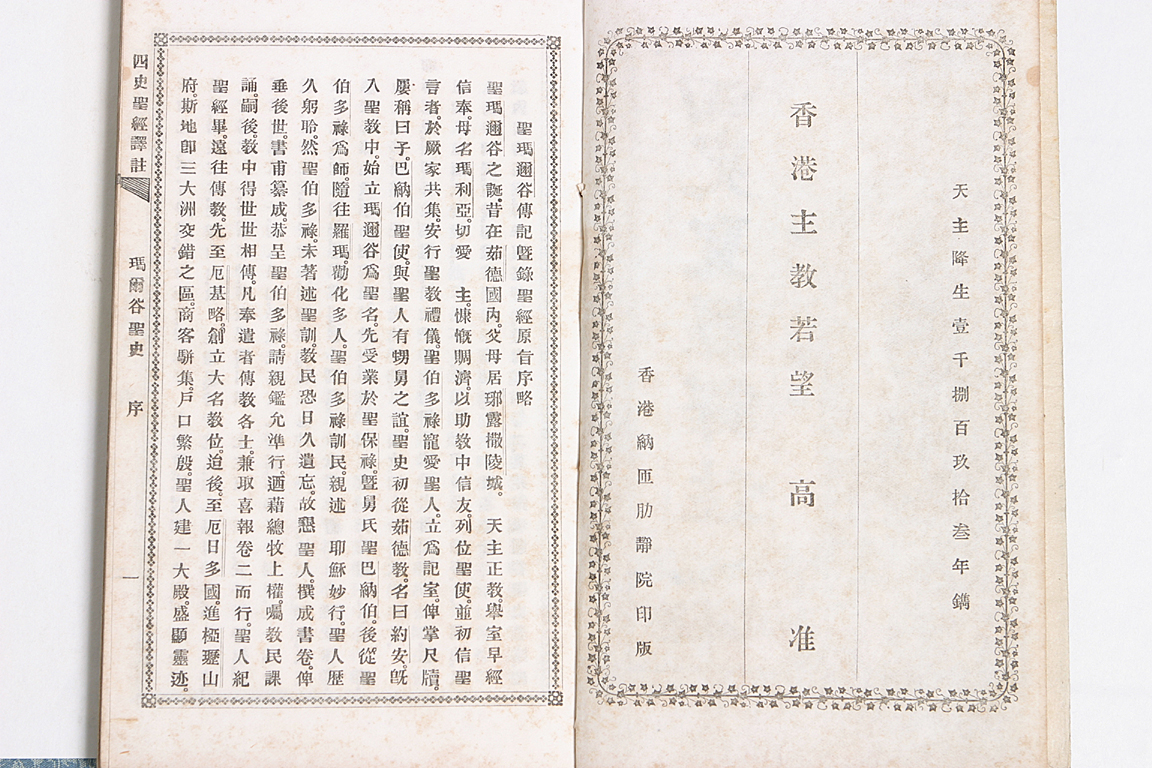 天主降生壹千捌百玖拾叁年鐫
香港主教若望 高 准
香港納匝肋靜院印版
聖瑪邇谷傳記曁錄聖經原旨序略
聖瑪邇谷之誕。昔在茹德國內。父母居耶露撒陵城。 天主正教。舉室早經
信奉。母名瑪利亞。切愛 主。慷慨賙濟。以助敎中信友。列位聖使。並初信聖
言者。於厥家共集。安行聖敎禮儀。聖伯多祿寵愛聖人。立爲記室。俾掌尺牘。
屢稱曰子。巴納伯聖使。與聖人有甥舅之誼。聖史初從茹德敎。名曰約安。旣
入聖敎中。始立瑪邇谷爲聖名。先受業於聖保祿。曁舅氏聖巴納伯。後從聖
伯多祿爲師。隨往羅瑪。勸化多人。聖伯多祿訓民。親述 耶穌妙行。聖人歷
久躬聆。然聖伯多祿。未著述聖訓。敎民恐日久遺忘。故懇聖人。撰成書卷。俾
垂後世。書甫纂成。恭呈聖伯多祿。請親鑑允準行。迺藉總牧上權。囑敎民課
誦。嗣後。敎中得世世相傳。凡奉遣者傳敎各士。兼取喜報卷二而行。聖人紀
聖經畢。遠往傳敎。先至厄基略。創立大名敎位。迨後。至厄日多國。進極瓑山
府。斯地卽三大洲交錯之區。商客騈集。戶口繁殷。聖人建一大殿。盛顯靈迹。
四史聖經譯註 瑪爾谷聖史 序 一